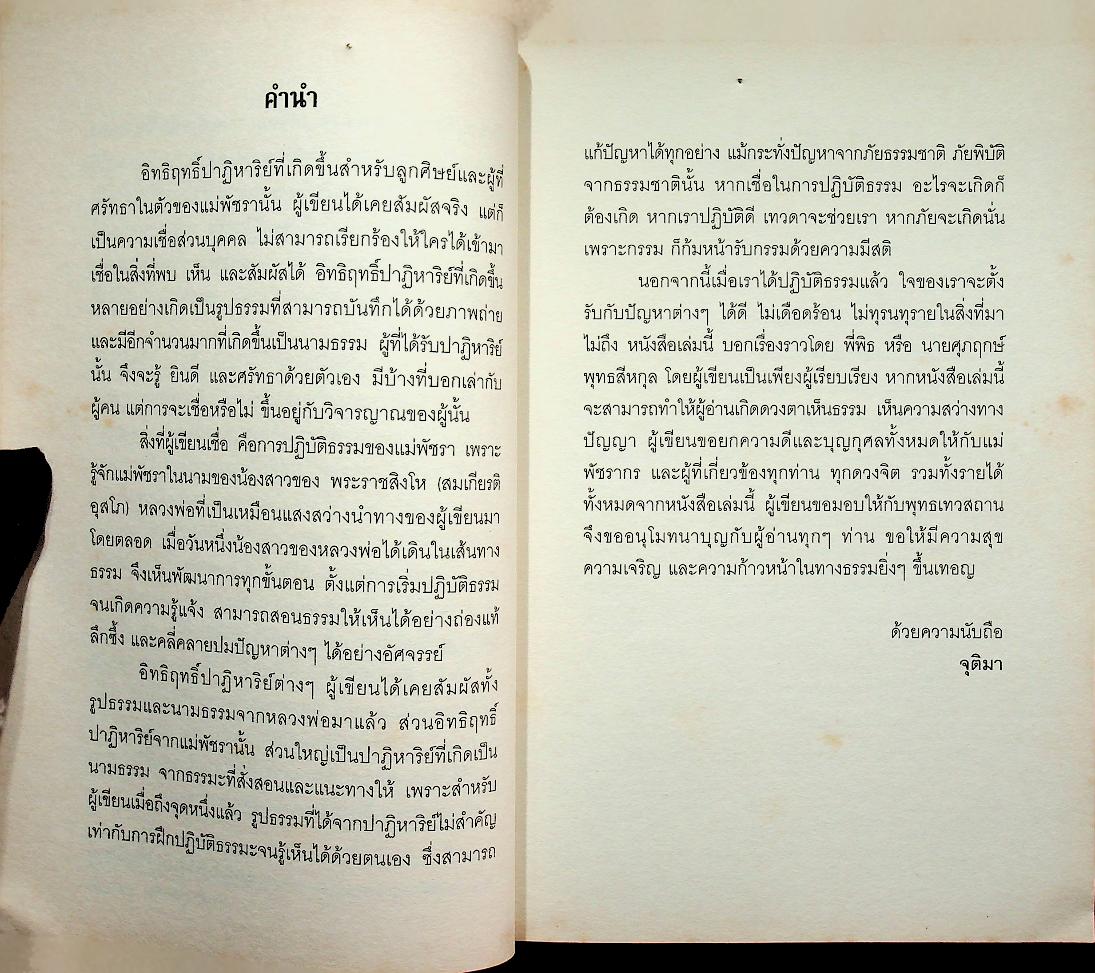 คำนำ
อิทธิฤทธิ์ปาฏิหาริย์ที่เกิดขึ้นสำหรับลูกศิษย์และผู้ที่
ศรัทธาในตัวของแม่พัชรานั้น ผู้เขียนได้เคยสัมผัสจริง แต่ก็
เป็นความเชื่อส่วนบุคคล ไม่สามารถเรียกร้องให้ใครได้เข้ามา
เชื่อในสิ่งที่พบ เห็น และสัมผัสได้ อิทธิฤทธิ์ปาฏิหาริย์ที่เกิดขึ้น
หลายอย่างเกิดเป็นรูปธรรมที่สามารถบันทึกได้ด้วยภาพถ่าย
และมีอีกจำนวนมากที่เกิดขึ้นเป็นนามธรรม ผู้ที่ได้รับปาฏิหาริย์
นั้น จึงจะรู้ ยินดี และศรัทธาด้วยตัวเอง มีบ้างที่บอกเล่ากับ
ผู้คน แต่การจะเชื่อหรือไม่ ขึ้นอยู่กับวิจารญาณของผู้นั้น
สิ่งที่ผู้เขียนเชื่อ คือการปฏิบัติธรรมของแม่พัชรา เพราะ
รู้จักแม่พัชราในนามของน้องสาวของ พระราชสิงโห (สมเกียรติ
อุสโภ) หลวงพ่อที่เป็นเหมือนแสงสว่างนำทางของผู้เขียนมา
โดยตลอด เมื่อวันหนึ่งน้องสาวของหลวงพ่อได้เดินในเส้นทาง
ธรรม จึงเห็นพัฒนาการทุกขั้นตอน ตั้งแต่การเริ่มปฏิบัติธรรม
จนเกิดความรู้แจ้ง สามารถสอนธรรมให้เห็นได้อย่างถ่องแท้
ลึกซึ้ง และคลี่คลายปมปัญหาต่างๆ ได้อย่างอัศจรรย์
อิทธิฤทธิ์ปาฏิหาริย์ต่างๆ ผู้เขียนได้เคยสัมผัสทั้ง
รูปธรรมและนามธรรมจากหลวงพ่อมาแล้ว ส่วนอิทธิฤทธิ์
ปาฏิหาริย์จากแม่พัชรานั้น ส่วนใหญ่เป็นปาฏิหาริย์ที่เกิดเป็น
นามธรรม จากธรรมะที่สั่งสอนและแนะทางให้ เพราะสำหรับ
ผู้เขียนเมื่อถึงจุดหนึ่งแล้ว รูปธรรมที่ได้จากปาฏิหาริย์ไม่สำคัญ
เท่ากับการฝึกปฏิบัติธรรมะจนรู้เห็นได้ด้วยตนเอง ซึ่งสามารถ
แก้ปัญหาได้ทุกอย่าง แม้กระทั่งปัญหาจากภัยธรรมชาติ ภัยพิบัติ
จากธรรมชาตินั้น หากเชื่อในการปฏิบัติธรรม อะไรจะเกิดก็
ต้องเกิด หากเราปฏิบัติดี เทวดาจะช่วยเรา หากภัยจะเกิดนั่น
เพราะกรรม ก็ก้มหน้ารับกรรมด้วยความมีสติ
นอกจากนี้เมื่อเราได้ปฏิบัติธรรมแล้ว ใจของเราจะตั้ง
รับกับปัญหาต่างๆ ได้ดี ไม่เดือดร้อน ไม่ทุรนทุรายในสิ่งที่มา
ไม่ถึง หนังสือเล่มนี้ บอกเรื่องราวโดย พี่พิธ หรือ นายศุภฤกษ์
พุทธสีหกุล โดยผู้เขียนเป็นเพียงผู้เรียบเรียง หากหนังสือเล่มนี้
จะสามารถทำให้ผู้อ่านเกิดดวงตาเห็นธรรม เห็นความสว่างทาง
ปัญญา ผู้เขียนขอยกความดีและบุญกุศลทั้งหมดให้กับแม่
พัชรากร และผู้ที่เกี่ยวข้องทุกท่าน ทุกดวงจิต รวมทั้งรายได้
ทั้งหมดจากหนังสือเล่มนี้ ผู้เขียนขอมอบให้กับพุทธเทวสถาน
จึงขออนุโมทนาบุญกับผู้อ่านทุกๆ ท่าน ขอให้มีความสุข
ความเจริญ และความก้าวหน้าในทางธรรมยิ่งๆ ขึ้นเทอญ
ด้วยความนับถือ
จุติมา